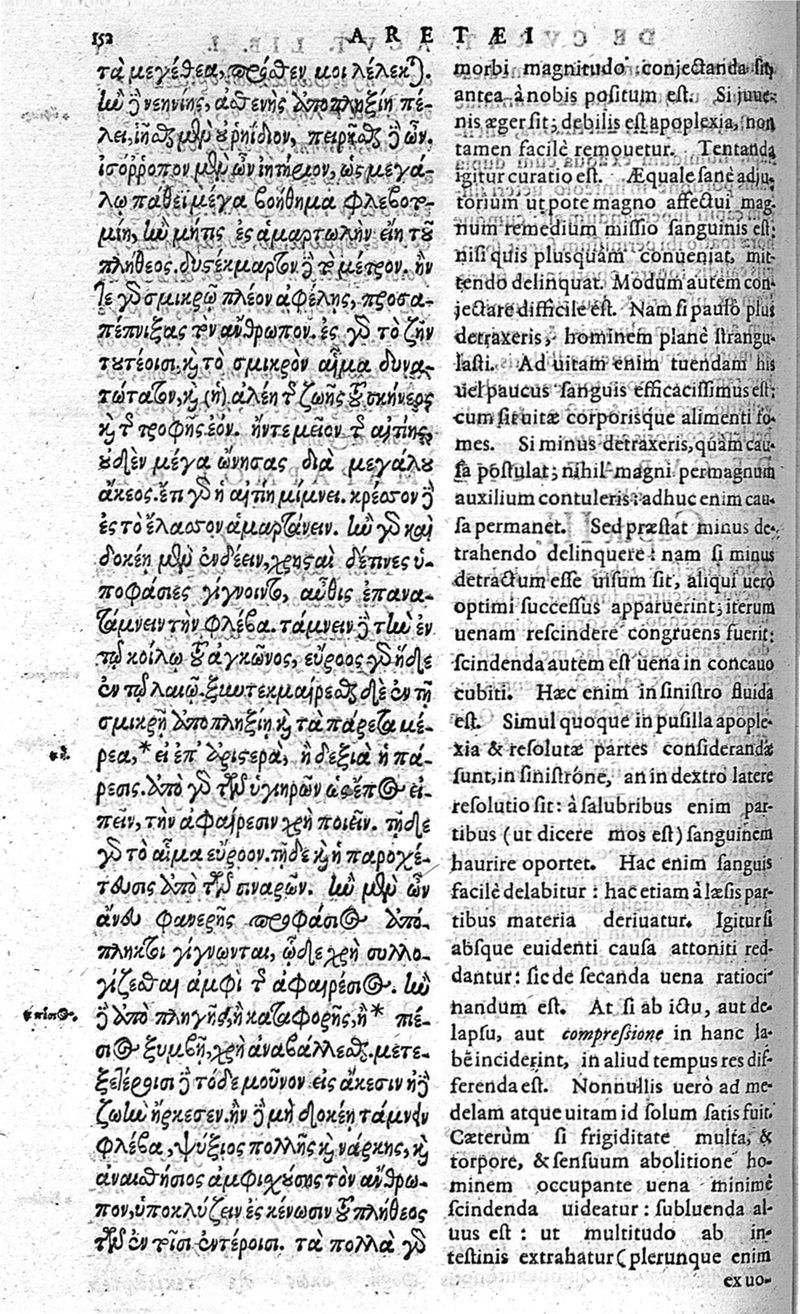 152 ARETÆI
τὰ μεγέθεα, πρόσθεν μοι λέλεκται.
ἢν δὲ νεηνίης, ἀσθενὴς ἀποπληξίη πέ-
λει, ἰῆσθαι μὲν οὐ ῥηίδιον, πειρῆσθαι δὲ ὦν.
ἰσόῤῥοπον μὲν ὦν ἰητήριον, ὡς μεγά-
λῳ πάθεϊ μέγα βοήθημα φλεβοτο-
μίη, ἢν μήτις ἐς ἁμαρτωλὴν εἴη τοῦ
πλήθεος. δυσέκμαρτον δὲ τὸ μέτρον. ἤν
τε γὰρ σμικρῷ πλέον ἀφέλῃς, προσα-
πέπνιξας τὸν ἄνθρωπον. ἐς γὰρ τὸ ζῆν
τουτέοισι καὶ τὸ σμικρὸν αἷμα δυνα-
τώτατον, καὶ (ἡ) ἀλέη τῆς ζωῆς τοῦ σκήνεος
καὶ τῆς τροφῆς ἐόν. ἤντε μεῖον τῆς αἰτίης,
οὐδὲν μέγα ὤνησας διὰ μεγάλου
ἄκεος. ἔτι γὰρ ἡ αἰτίη μίμνει. κρέσσον δὲ
ἐς τὸ ἔλασσον ἁμαρτάνειν. ἢν γὰρ καὶ
δοκέῃ μὲν ἐνδέειν, χρησταὶ δέ τινες ὑ-
ποφάσιες γίγνοιντο, αὖθις ἐπανα-
τάμνειν τὴν φλέβα. τάμνειν δὲ τὴν ἐν
τῷ κοίλῳ τοῦ ἀγκῶνος, εὔροος γὰρ ἥδε
ἐν τῷ λαιῷ. ξυντεκμαίρεσθαι δὲ ἐν τῇ
σμικρῇ ἀποπληξίῃ καὶ τὰ πάρετα μέ-
ρεα, * εἰ ἐπ' ἀριστερὰ, ἢ δεξιὰ ἡ πά-
ρεσις. ἀπὸ γὰρ τῶν ὑγιηρῶν ὡς ἔπος εἰ-
πεῖν, τὴν ἀφαίρεσιν χρὴ ποιεῖν. τῇδε
γὰρ τὸ αἷμα εὔροον. τῇδε καὶ ἡ παροχέ-
τευσις ἀπὸ τῶν σιναρῶν. ἢν μὲν ὦν
ἄνευ φανερῆς προφάσιος ἀπό-
πληκτοι γίγνωνται, ὧδε χρὴ συλλο-
γίζεσθαι ἀμφὶ τῆς ἀφαιρέσιος. ἢν
δὲ ἀπὸ πληγῆς, ἢ καταφορῆς, ἢ * πιέ-
σιος ξυμβῇ, χρὴ ἀναβάλλεσθαι. μετε-
ξετέροισι δὲ τόδε μοῦνον εἰς ἄκεσιν ἠδὲ
ζωὴν ἤρκεσεν. ἢν δὲ μὴ δοκέῃ τάμνειν
φλέβα, ψύξιος πολλῆς καὶ νάρκης, καὶ
ἀναισθήσιος ἀμφιχούσης τὸν ἄνθρω-
πον, ὑποκλύζειν ἐς κένωσιν τοῦ πλήθεος
τῶν ἐν τοῖσι ἐντέροισι. τὰ πολλὰ γὰρ
morbi magnitudo conjectanda sit,
antea à nobis positum est. Si juue-
nis æger sit; debilis est apoplexia, non
tamen facilè remouetur. Tentanda
igitur curatio est. Æquale sanè adju-
torium ut pote magno affectui mag-
num remedium missio sanguinis est:
nisi quis plusquàm conueniat, mit-
tendo delinquat. Modum autem con-
jectare difficile est. Nam si paulò plus
detraxeris, hominem planè strangu-
lasti. Ad uitam enim tuendam his
uel paucus sanguis efficacissimus est:
cum sit uitæ corporisque alimenti fo-
mes. Si minus detraxeris, quàm cau-
sa postulat; nihil magni permagnum
auxilium contuleris: adhuc enim cau-
sa permanet. Sed præstat minus de-
trahendo delinquere: nam si minus
detractum esse uisum sit, aliqui uerò
optimi successus apparuerint; iterum
uenam rescindere congruens fuerit:
scindenda autem est uena in concauo
cubiti. Hæc enim in sinistro fluida
est. Simul quoque in pusilla apople-
xia & resolutæ partes considerandæ
sunt, in sinistróne, an in dextro latere
resolutio sit: à salubribus enim par-
tibus (ut dicere mos est) sanguinem
haurire oportet. Hac enim sanguis
facilè delabitur: hac etiam à læsis par-
tibus materia deriuatur. Igitur si
absque euidenti causa attoniti red-
dantur: sic de secanda uena ratioci
nandum est. At si ab ictu, aut de-
lapsu, aut compressione in hanc la-
bẽ inciderint, in aliud tempus res dif-
ferenda est. Nonnullis uerò ad me-
delam atque uitam id solum satis fuit.
Cæterùm si frigiditate multa, &
torpore, & sensuum abolitione ho-
minem occupante uena minimè
scindenda uideatur: subluenda al-
uus est: ut multitudo ab in-
testinis extrahatur (plerunque enim
ex uo-